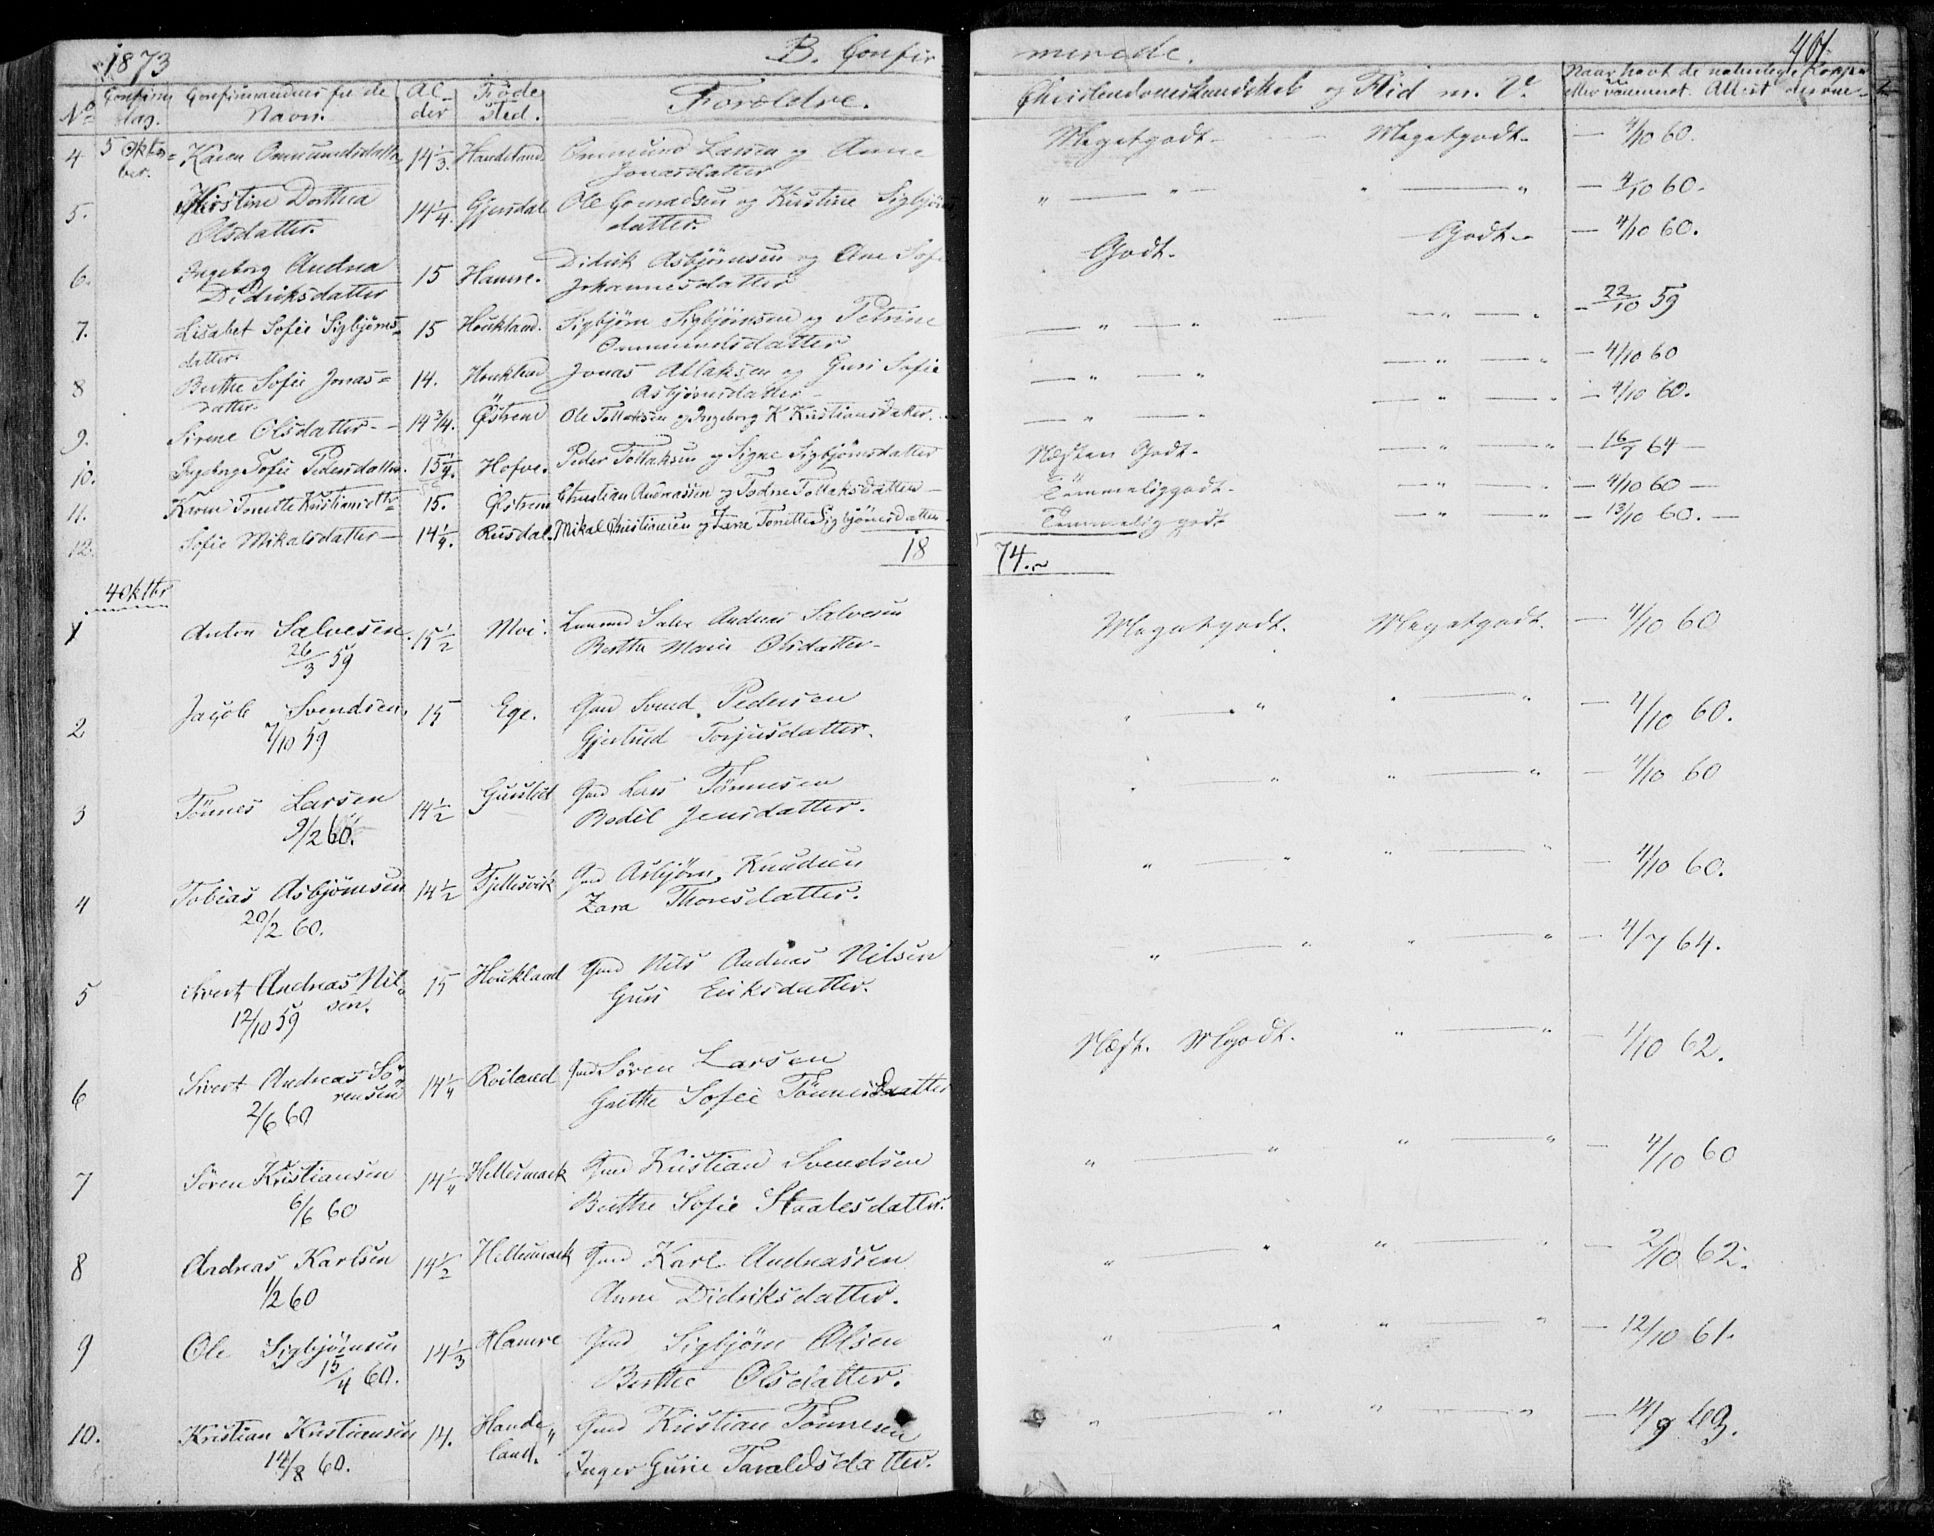 1873 B. Confirmerede. 401.
No Confirm dag. Confirmandens fulde Navn. Alder Føde sted. Forældre. Christendomskundskab og Flid m. V. Naar havt de naturlige Kopper eller vaccineret. Attest derom
4 5 Oktober. Karen Ommundsdatter 14 1/3. Haadeland Ommund Larsen og Anne Jonasdatter Megetgodt. Megetgodt. 4/10 60.
5. Kirstine Dorthea Olsdatter. 14 1/4. Gjersdal Ole og Kirstine Sigbjørnsdatter. " — " " — " 4/10 60.
6. Ingeborg Andrea Didriksdatter 15 Hamre. Didrik Asbjørnsen og Ane Sofie Johannesdatter Godt. Godt. 4/10 60.
7. Lisabet Sofie Sigbjørnsdatter. 15 Houkland. Sigbjørn Sigbjørnsen og Petrine Ommundsdatter — " — " — " — " 22/10 59
8 Berthe Sofie Jonasdatter. 14. Houkland Jonas Atlaksen og Guri Sofie Asbjørnsdatter — " — " — " — " 4/10 60
9. Sirene Olsdatter 14 3/4. Østrem Ole Tollaksen og Ingeborg K Kristiansdatter. — " — " — " — " 4/10 60.
10. Ingeborg Sofie Pedersdatter. 15 1/4. Hofve. Peder Tollaksen og Signe Sigbjørnsdatter Næsten Godt. — " — " 16/7 64
11. Karen Tonette Kristiansdtr 15. Østrem Christian Andreassen og Todne Tollaksdatter Temmeliggodt. — " — " 4/10 60
12. Sofie Mikalsdatter 14 1/4. Rusdal. Mikal Christiansen og Tonette Sigbjørnsdatter Temmelig godt — " — " 13/10 60.
18 74.
4 Oktbr
1 Anton Salvesen. 15 1/2 Moi. Salve Andreas Salvesen Megetgodt. Megetgodt. 4/10 60
26/3 59 Berthe Marie Olsdatter
2 Jacob Svendsen. 15 Ege. Gmd Svend Pedersen " — " " — " 4/10 60.
7/10 59 Gjertrud Torjusdatter.
3 Tønnes Larsen 14 1/2 Gmd Lars Tønnesen " — " " — " 4/10 60
9/2 60. Bodil Jensdatter.
4 Tobias Asbjørnsen 14 1/2 Fjellesvik Gmd Asbjørn Knudsen " — " " — " 4/10 60.
20/2 60. Zara Thoresdatter.
5 Sivert Andreas Nilsen. 15 Houkland Gmd Nils Andreas Nilsen " — " " — " 4/7 64.
12/10 59 Guri Eriksdatter.
6 Sivert Andreas Sørensen 14 1/4 Roiland Gmd Søren Larsen Næst. MGodt. " — " 4/10 62.
2/6 60 Grethe Sofie Tønnesdatter
7 Søren Kristiansen 14 1/4 Hellesmark Gmd Kristian Svendsen " — " " — " 4/10 60
6/6 60 Berthe Sofie Staalesdatter.
8 Andreas Karlsen 14 1/2 Hellesmark Gmd Karl Andreassen " — " " — " 2/10 62.
1/2 60 Anne Didriksdatter.
9 Ole Sigbjørnsen 14 1/3 Hamre Gmd Sigbjørn Olsen " — " " — " 12/10 61.
15/4 60. Berthe Olsdatter.
10. Kristian Kristiansen 14. Haadeland. Gmd Kristian Tønnesen " — " " — " 14/9 63.
14/8 60. Inger Gurie Taraldsdatter.